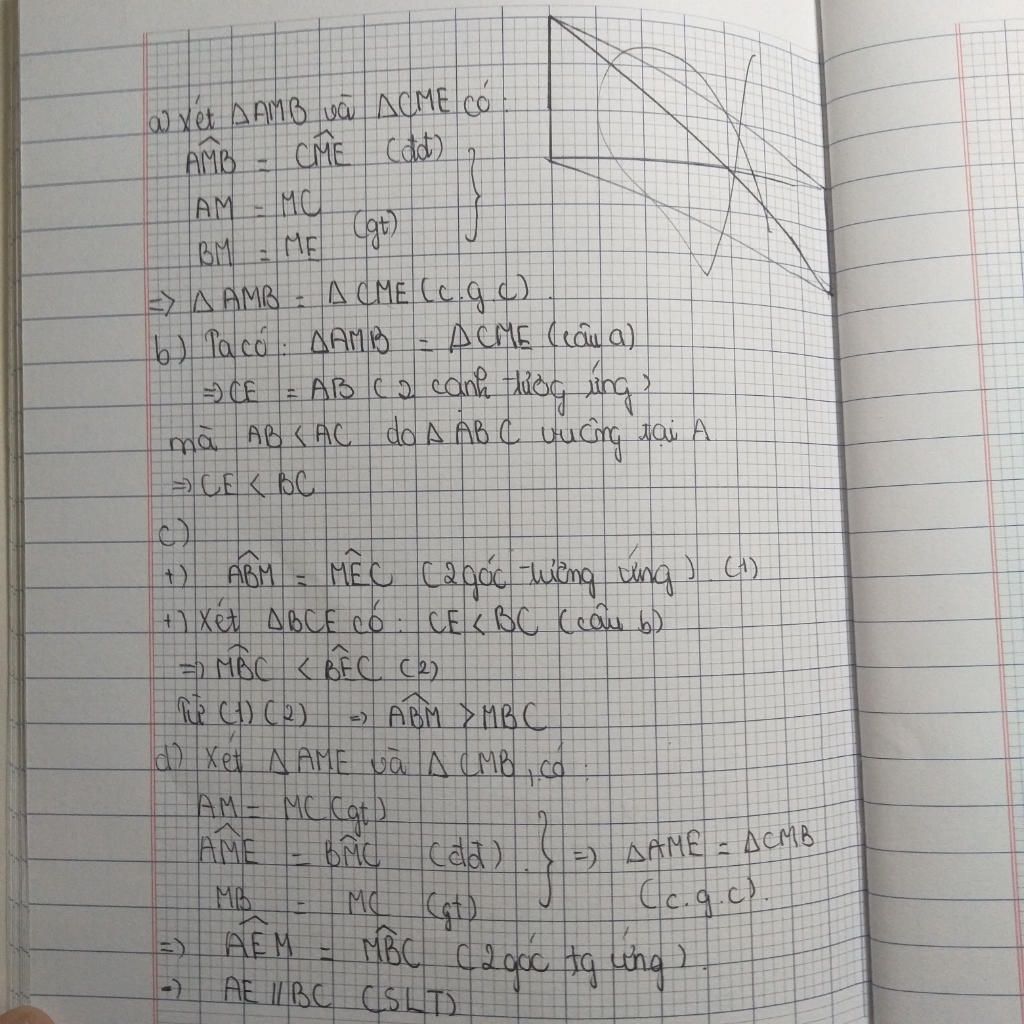 a) Xét ΔAMB và ΔCME có:
AM̂B = CM̂E (đđ)
AM = MC
BM = ME (gt)
=> ΔAMB = ΔCME (c.g.c)
b) Ta có: ΔAMB = ΔCME (câu a)
=> CE = AB (2 cạnh tương ứng)
mà AB < AC do ΔABC vuông tại A
=> CE < BC
c)
+) AB̂M = MÊC (2 góc tương ứng) (1)
+) Xét ΔBCE có: CE < BC (câu b)
=> MB̂C < BÊC (2)
Từ (1) (2) => AB̂M > MBC
d) Xét ΔAME và ΔCMB, có:
AM = MC (gt)
AM̂E = BM̂C (đđ) } => ΔAME = ΔCMB
MB = MC (gt) (c.g.c).
=> AÊM = MB̂C (2 góc tg ứng).
=> AE // BC (SLT)